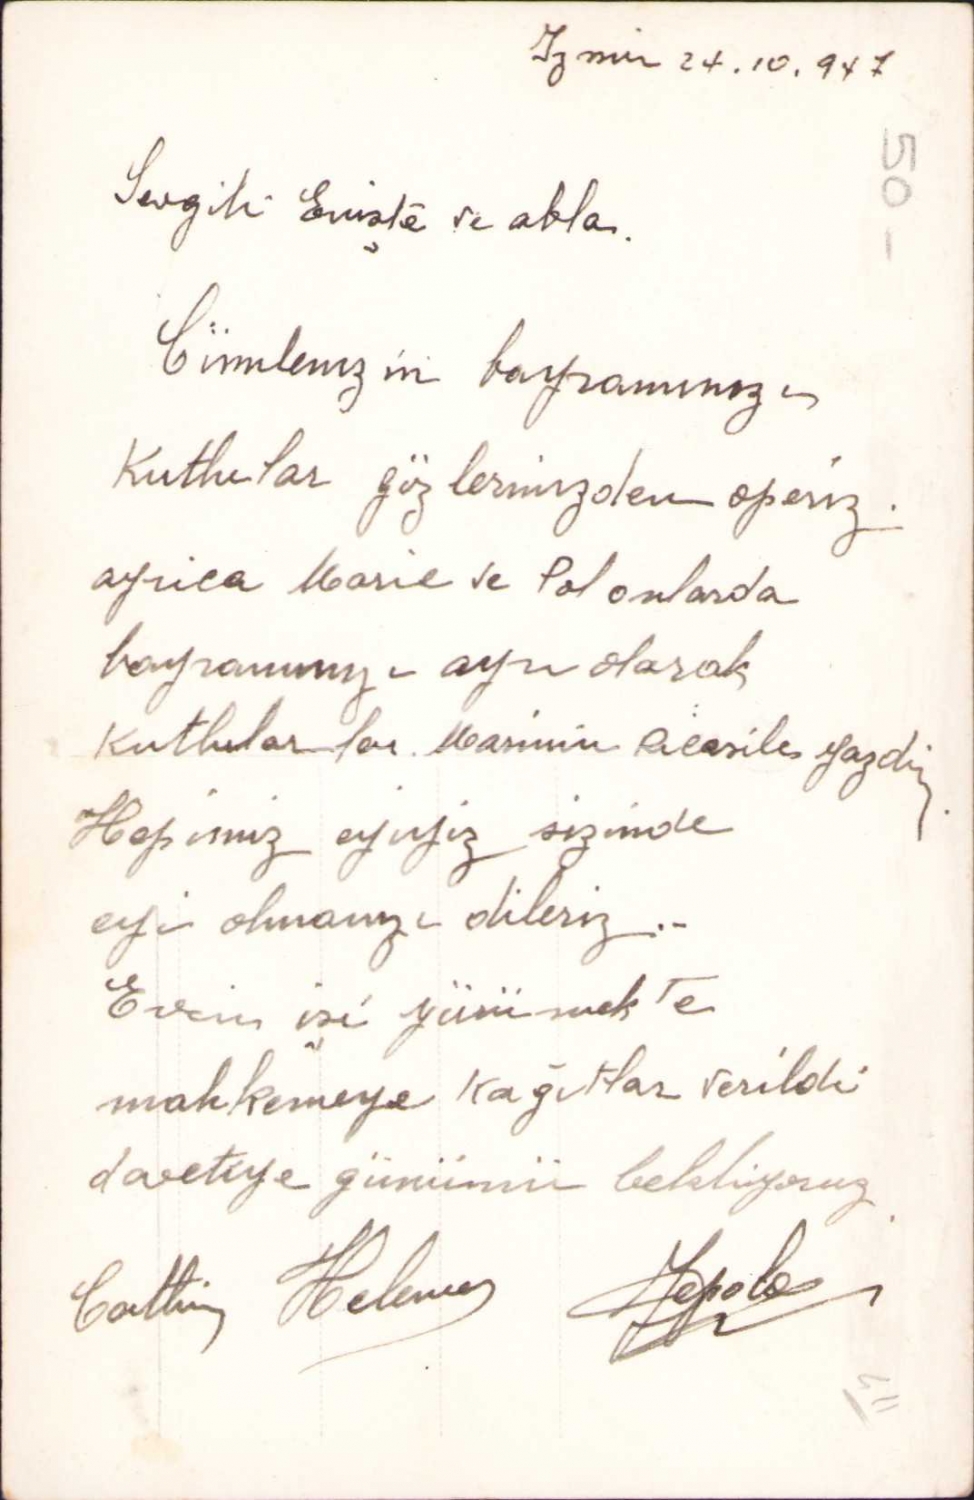 Izmir 24.10.947
50 -
Sevgili Enişte ve abla.
Cümlenizin bayramınızı
Kutlular gözlerinizden öperiz.
ayrıca Marie ve Pol onlarda
bayramınızı ayrı olarak
Kutlularlar. Marinin ricasile yazdım.
Hepimiz eyiyiz sizinde
eyi olmanızı dileriz ..
Evin işi yürümekte
mahkemeye kağıtlar verildi
davetiye gününü bekliyoruz.
Helene